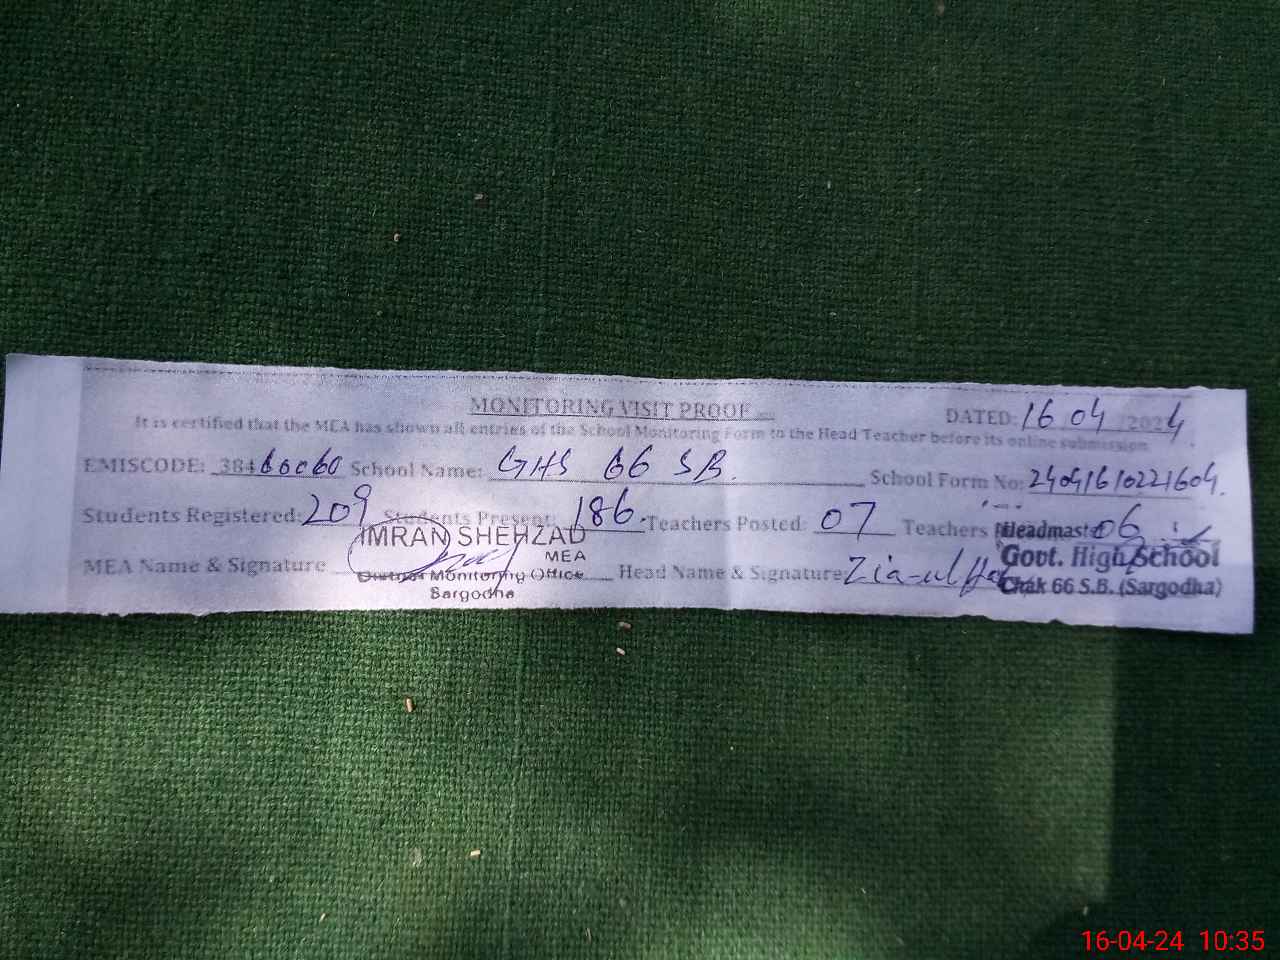 MONITORING VISIT PROOF
DATED: 16 04 /2024
It is certified that the MEA has shown all entries of the School Monitoring Form to the Head Teacher before its online submission.
EMISCODE: 38460060 School Name: GHS 66 SB. School Form No: 24041610221604.
Students Registered: 209 Students Present: 186. Teachers Posted: 07 Teachers 06
MEA Name & Signature Head Name & Signature Zia-ul
IMRAN SHEHZAD
MEA
District Monitoring Office
Sargodha
Headmaster
Govt. High School
Chak 66 S.B. (Sargodha)
16-04-24 10:35